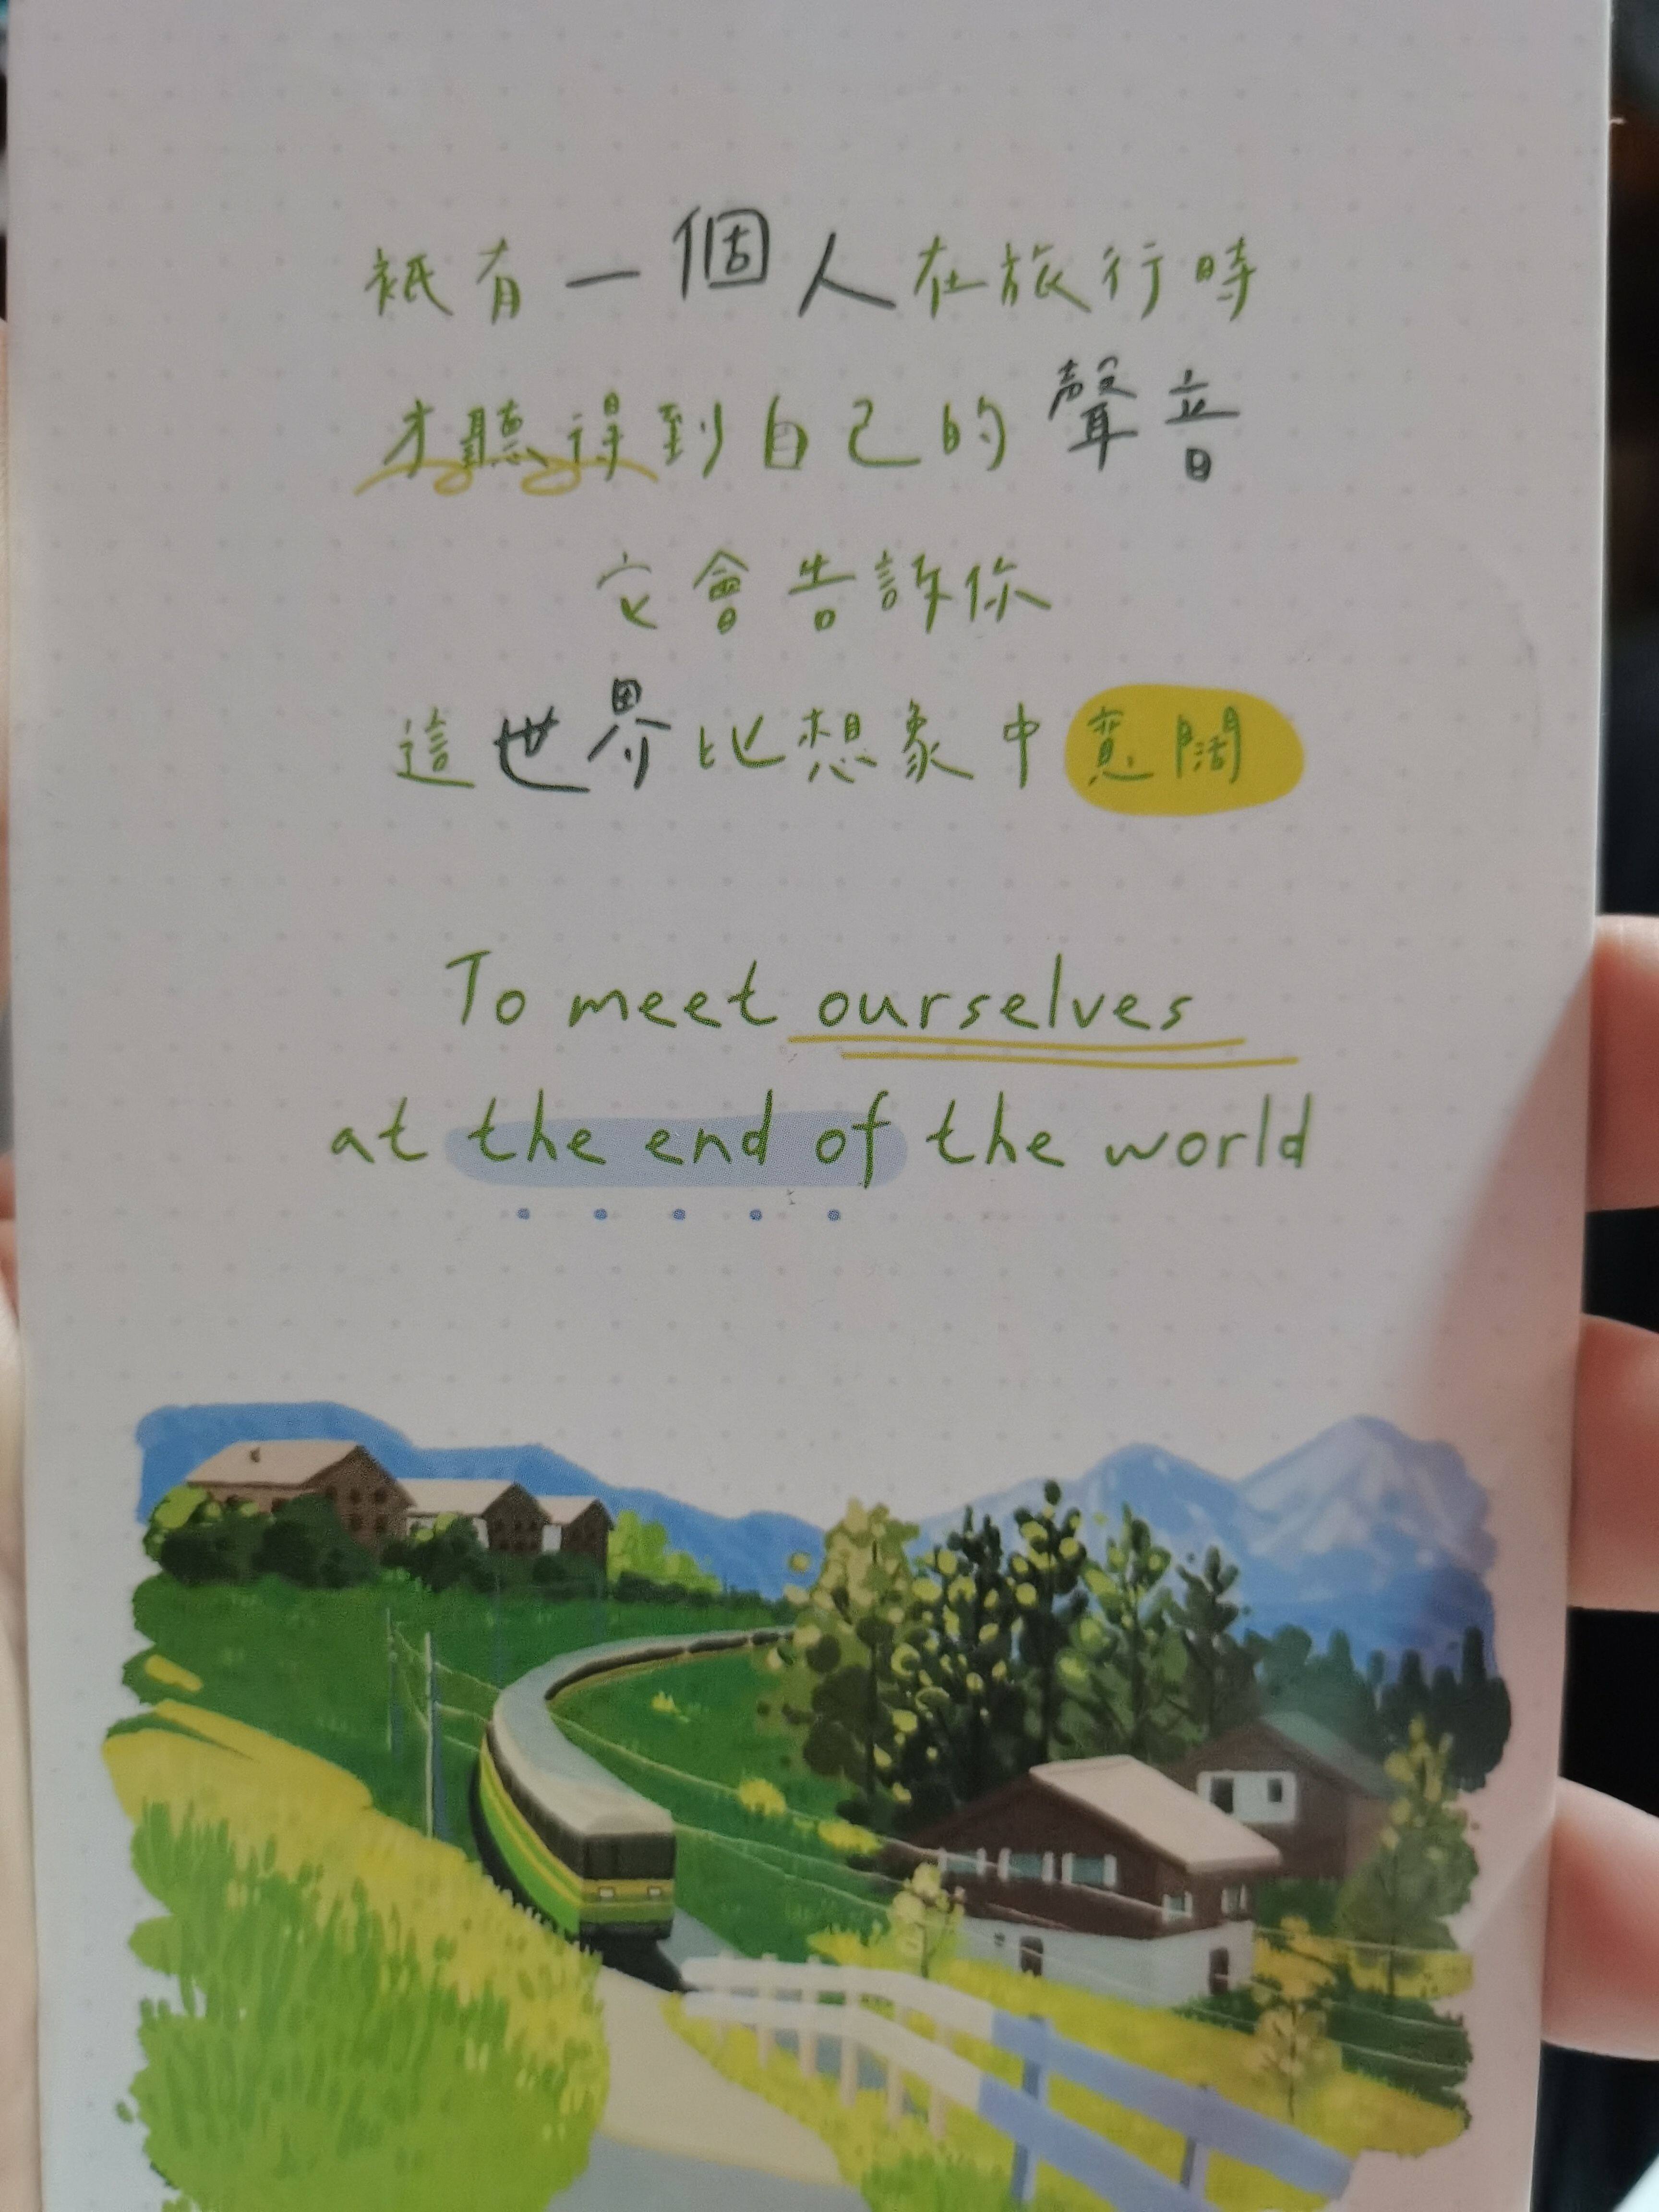 衹有一個人在旅行時
才聽得到自己的聲音
它會告訴你
這世界比想象中寬闊
To meet ourselves
at the end of the world